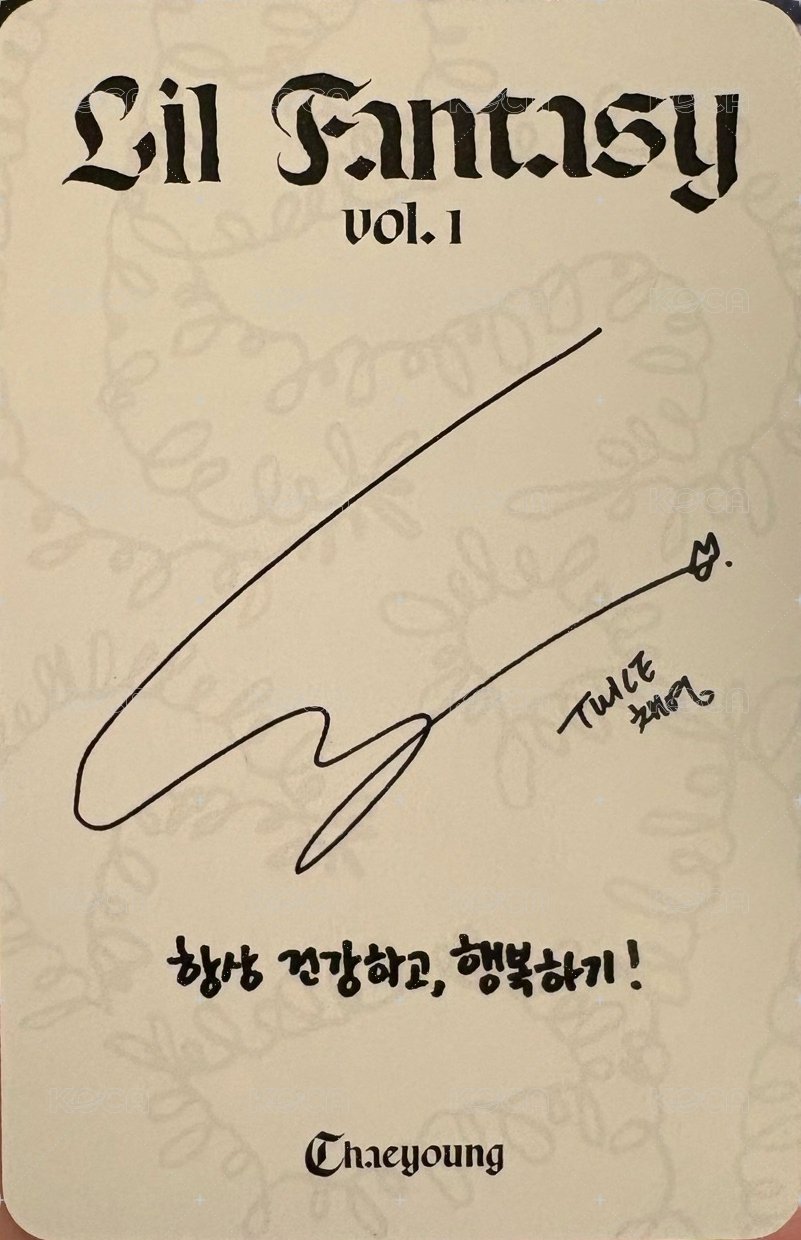 Lil Fantasy
vol. 1
TWICE
채영
항상 건강하고, 행복하기!
Chaeyoung
KOCA